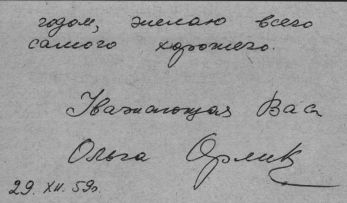 годом, желаю всего
самого хорошего.
Уважающая Вас
Ольга Орлик
29. XII. 59г.